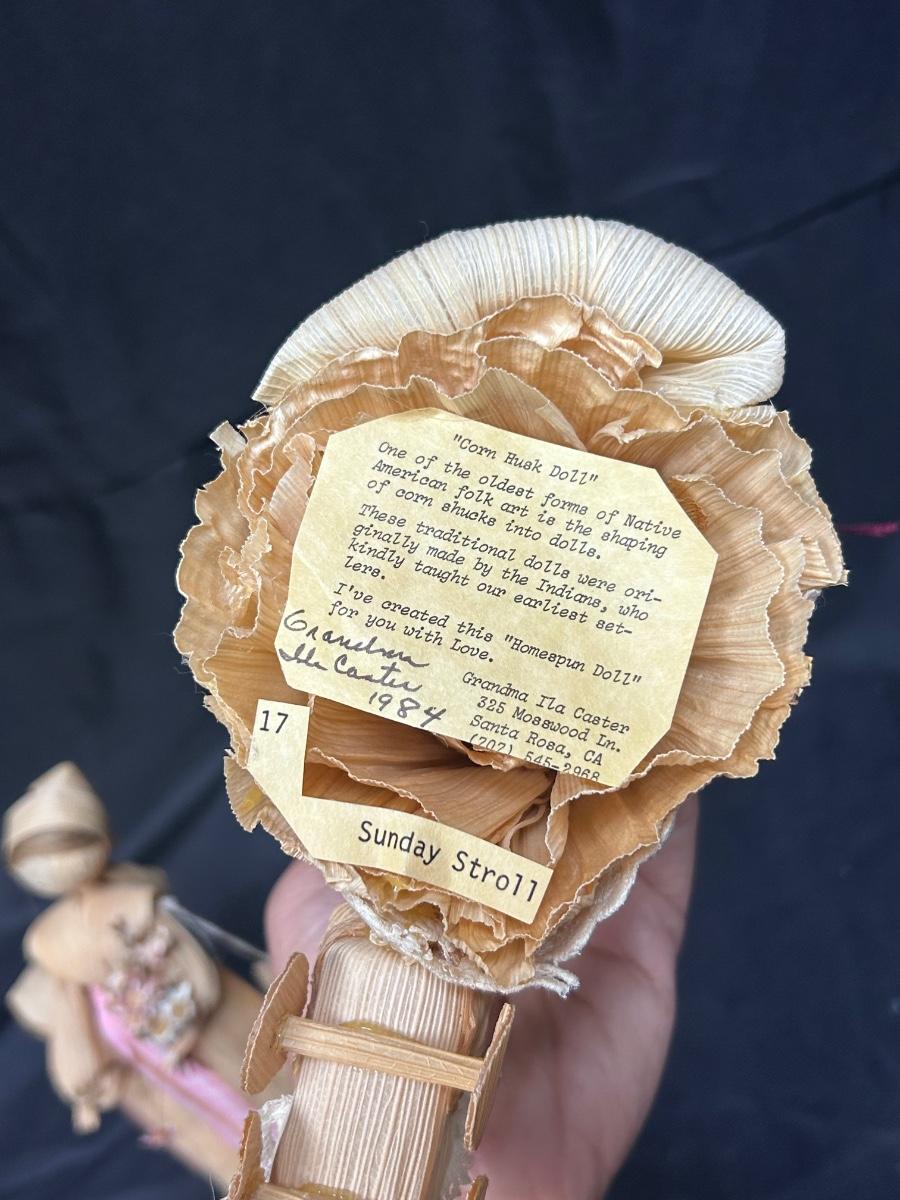 "Corn Husk Doll"
One of the oldest forms of Native
American folk art is the shaping
of corn shucks into dolls.
These traditional dolls were ori-
ginally made by the Indians, who
kindly taught our earliest set-
lers.
I've created this "Homespun Doll"
for you with Love.
Grandma Ila Caster
325 Mosswood Ln.
Santa Rosa, CA
(707) 545-2968
Grandma
Ila Caster
1984
17
Sunday Stroll